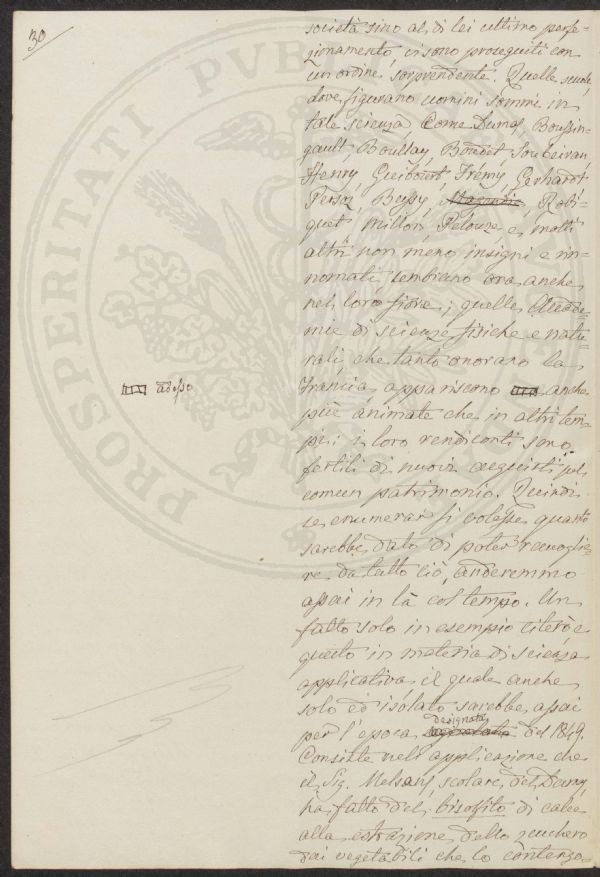 30
società sino al di lei ultimo perfe-
zionamento, ci sono proseguiti con
un ordine sorprendente. Quelle scuole
dove figurano uomini sommi in
tale scienza, Come Dumas, Boussin-
gault, Boullay, Boudet, Soubeiran,
Henry, Guibourt, Frémy, Gerhardt
Persoz, Bussy, Robi-
quet, Millon, Pelouze e molti
altri non meno insigni e rin-
nomati sembrano ora anche
nel loro fiore; quelle Accade-
mie di scienze fisiche e natu-
rali che tanto onorano la
Francia appariscono anche
adesso
più animate che in altri tem-
pi; i loro rendiconti sono
fertili di nuovi acquisti pel
comun patrimonio. Quindi
se enumerar si volesse quanto
sarebbe dato di poter raccoglie-
re da tutto ciò, anderemmo
assai in là col tempo. Un
fatto solo in esempio citerò e
questo in materia di scienza
applicativa il quale anche
solo ed isolato sarebbe assai
per l'epoca designata del 1849.
Consiste nell'applicazione che
il Sig. Melsens, scolare del Dumas,
ha fatto del bisolfito di calce
alla estrazione dello zucchero
dai vegetabili che lo contengo-
PROSPERITATI PVBLICAE